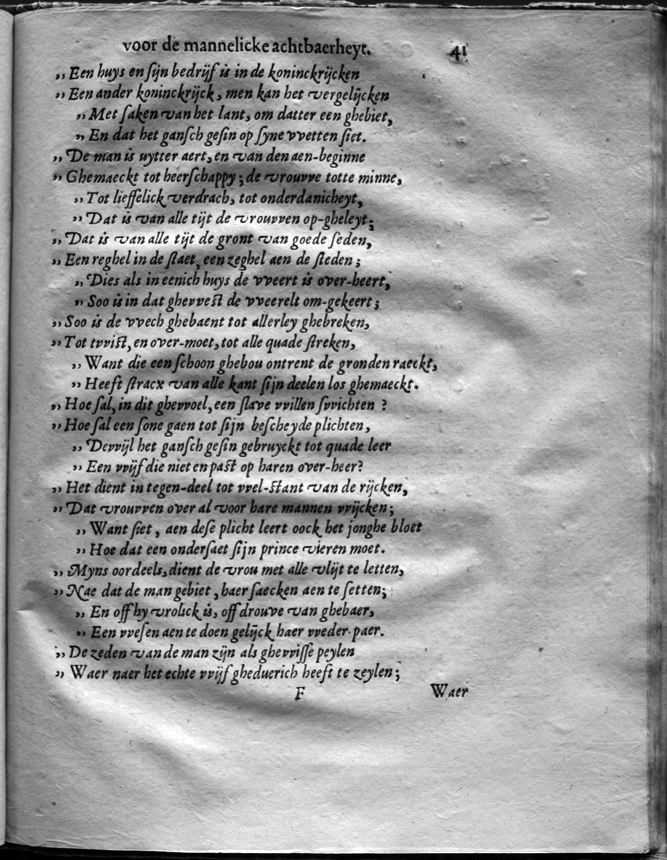 voor de mannelicke achtbaerheyt. 41
,, Een huys en ſijn bedrijf is in de koninckrijcken
,, Een ander koninckrijck, men kan het vergelijcken
,, Met ſaken van het lant, om datter een ghebiet,
,, En dat het ganſch geſin op ſyne vvetten ſiet.
,, De man is uytter aert, en van den aen-beginne
,, Ghemaeckt tot heerſchappy; de vrouvve totte minne,
,, Tot lieffelick verdrach, tot onderdanicheyt,
,, Dat is van alle tijt de vrouvven op-gheleyt;
,, Dat is van alle tijt de gront van goede ſeden,
,, Een reghel in de ſtaet, een zeghel aen de ſteden;
,, Dies als in eenich huys de vveert is over-heert,
,, Soo is in dat ghevveſt de vveerelt om-gekeert;
,, Soo is de vvech ghebaent tot allerley ghebreken,
,, Tot tvviſt, en over-moet, tot alle quade ſtreken,
,, Want die een ſchoon ghebou ontrent de gronden raeckt,
,, Heeft ſtracx van alle kant ſijn deelen los ghemaeckt.
,, Hoe ſal, in dit ghevvoel, een ſlave vvillen ſvvichten ?
,, Hoe ſal een ſone gaen tot ſijn beſcheyde plichten,
,, Devvijl het ganſch geſin gebruyckt tot quade leer
,, Een vvijf die niet en paſt op haren over-heer?
,, Het dient in tegen-deel tot vvel-ſtant van de rijcken,
,, Dat vrouvven over al voor hare mannen vvijcken;
,, Want ſiet, aen deſe plicht leert oock het jonghe bloet
,, Hoe dat een onderſaet ſijn prince vieren moet.
,, Myns oordeels, dient de vrou met alle vlijt te letten,
,, Nae dat de man gebiet, haer ſaecken aen te ſetten;
,, En off hy vrolick is, off drouve van ghebaer,
,, Een vveſen aen te doen gelijck haer vveder-paer.
,, De zeden van de man zijn als ghevviſſe peylen
,, Waer naer het echte vvijf gheduerich heeft te zeylen;
F Waer